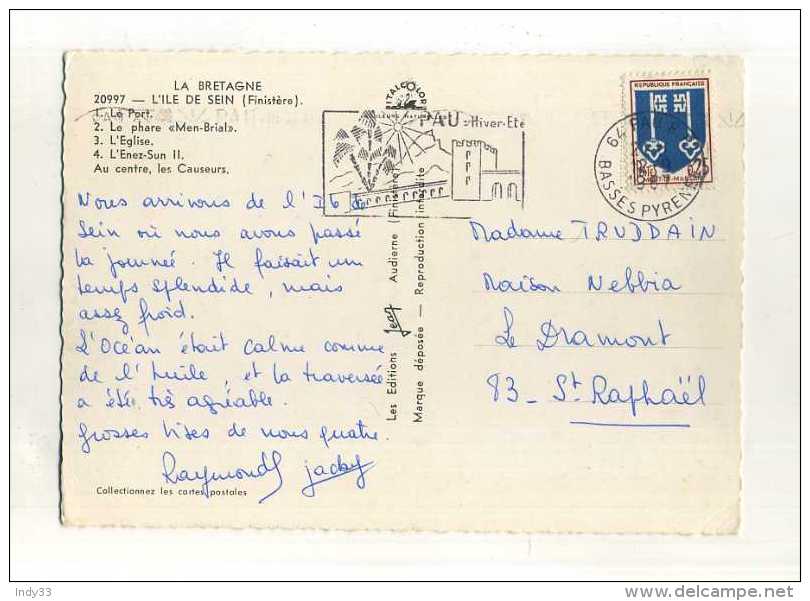 LA BRETAGNE
20997 — L'ILE DE SEIN (Finistère).
1. Le Port.
2. Le phare «Men-Brial».
3. L'Eglise.
4. L'Enez-Sun II.
Au centre, les Causeurs.
Nous arrivons de l'Ile de
Sein où nous avons passé
la journée. Il faisait un
temps splendide, mais
assez froid.
L'Océan était calme comme
de l'huile, et la traversée
a été très agréable.
Grosses bises de nous quatre.
Raymond Jacky
Collectionnez les cartes postales
Les Editions Jean Audierne (Finistère)
Marque déposée — Reproduction interdite
ITALCOLOR
PAU Hiver-Eté
64 PAU
BASSES PYRENEES
REPUBLIQUE FRANÇAISE
0,25
MONT-DE-MARSAN
Madame TRUDDAIN
Maison Nebbia
Le Dramont
83 - St Raphaël
Indy33
delcampe.net